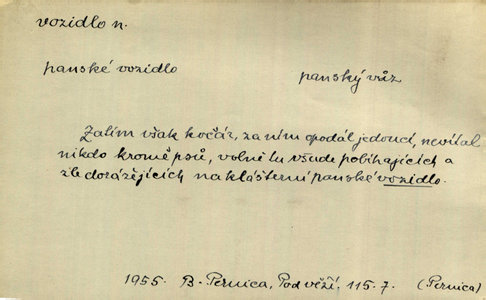 vozidlo n.
panské vozidlo panský vůz
Zatím však kočár, za ním opodál jedoucí, nevítal
nikdo kromě psů, volně tu všude pobíhajících a
zle dorážejících na klášterní panské vozidlo.
1955. B. Pernica, Pod věží. 115.7. (Pernica)